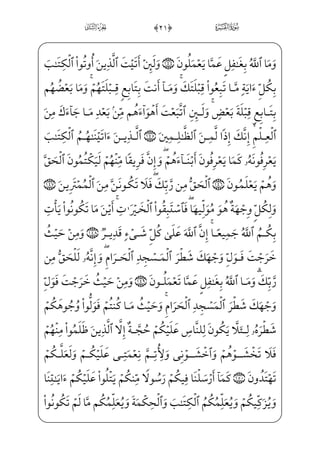 سُورَةُ البَقَرَةِ ﴿٢١﴾ الجُزْءُ الثَّانِي
وَمَا ٱللَّهُ بِغَٰفِلٍ عَمَّا يَعْمَلُونَ ۝ وَلَئِنْ أَتَيْتَ ٱلَّذِينَ أُوتُوا۟ ٱلْكِتَٰبَ
بِكُلِّ ءَايَةٍ مَّا تَبِعُوا۟ قِبْلَتَكَ ۚ وَمَآ أَنتَ بِتَابِعٍ قِبْلَتَهُمْ ۚ وَمَا بَعْضُهُم
بِتَابِعٍ قِبْلَةَ بَعْضٍ ۚ وَلَئِنِ ٱتَّبَعْتَ أَهْوَآءَهُم مِّنۢ بَعْدِ مَا جَآءَكَ مِنَ
ٱلْعِلْمِ ۙ إِنَّكَ إِذًا لَّمِنَ ٱلظَّٰلِمِينَ ۝ ٱلَّذِينَ ءَاتَيْنَٰهُمُ ٱلْكِتَٰبَ
يَعْرِفُونَهُۥ كَمَا يَعْرِفُونَ أَبْنَآءَهُمْ ۖ وَإِنَّ فَرِيقًا مِّنْهُمْ لَيَكْتُمُونَ ٱلْحَقَّ
وَهُمْ يَعْلَمُونَ ۝ ٱلْحَقُّ مِن رَّبِّكَ ۖ فَلَا تَكُونَنَّ مِنَ ٱلْمُمْتَرِينَ ۝
وَلِكُلٍّ وِجْهَةٌ هُوَ مُوَلِّيهَا ۖ فَٱسْتَبِقُوا۟ ٱلْخَيْرَٰتِ ۚ أَيْنَ مَا تَكُونُوا۟ يَأْتِ
بِكُمُ ٱللَّهُ جَمِيعًا ۚ إِنَّ ٱللَّهَ عَلَىٰ كُلِّ شَىْءٍ قَدِيرٌ ۝ وَمِنْ حَيْثُ
خَرَجْتَ فَوَلِّ وَجْهَكَ شَطْرَ ٱلْمَسْجِدِ ٱلْحَرَامِ ۖ وَإِنَّهُۥ لَلْحَقُّ مِن
رَّبِّكَ ۗ وَمَا ٱللَّهُ بِغَٰفِلٍ عَمَّا تَعْمَلُونَ ۝ وَمِنْ حَيْثُ خَرَجْتَ فَوَلِّ
وَجْهَكَ شَطْرَ ٱلْمَسْجِدِ ٱلْحَرَامِ ۚ وَحَيْثُ مَا كُنتُمْ فَوَلُّوا۟ وُجُوهَكُمْ
شَطْرَهُۥ لِئَلَّا يَكُونَ لِلنَّاسِ عَلَيْكُمْ حُجَّةٌ إِلَّا ٱلَّذِينَ ظَلَمُوا۟ مِنْهُمْ
فَلَا تَخْشَوْهُمْ وَٱخْشَوْنِى وَلِأُتِمَّ نِعْمَتِى عَلَيْكُمْ وَلَعَلَّكُمْ
تَهْتَدُونَ ۝ كَمَآ أَرْسَلْنَا فِيكُمْ رَسُولًا مِّنكُمْ يَتْلُوا۟ عَلَيْكُمْ ءَايَٰتِنَا
وَيُزَكِّيكُمْ وَيُعَلِّمُكُمُ ٱلْكِتَٰبَ وَٱلْحِكْمَةَ وَيُعَلِّمُكُم مَّا لَمْ تَكُونُوا۟